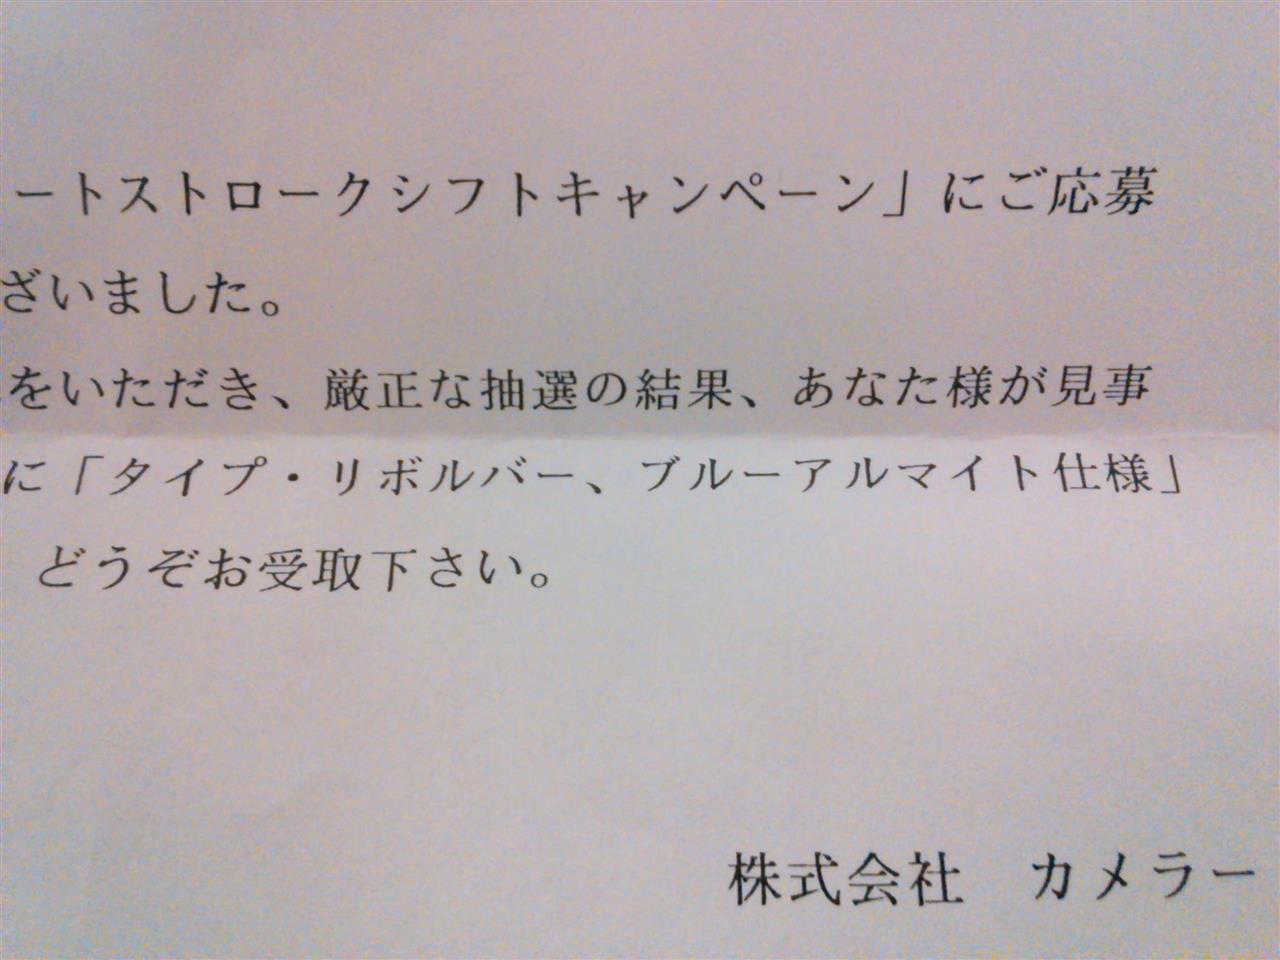 ートストロークシフトキャンペーン」にご応募
ざいました。
をいただき、厳正な抽選の結果、あなた様が見事
に「タイプ・リボルバー、ブルーアルマイト仕様」
どうぞお受取下さい。
株式会社　カメラー